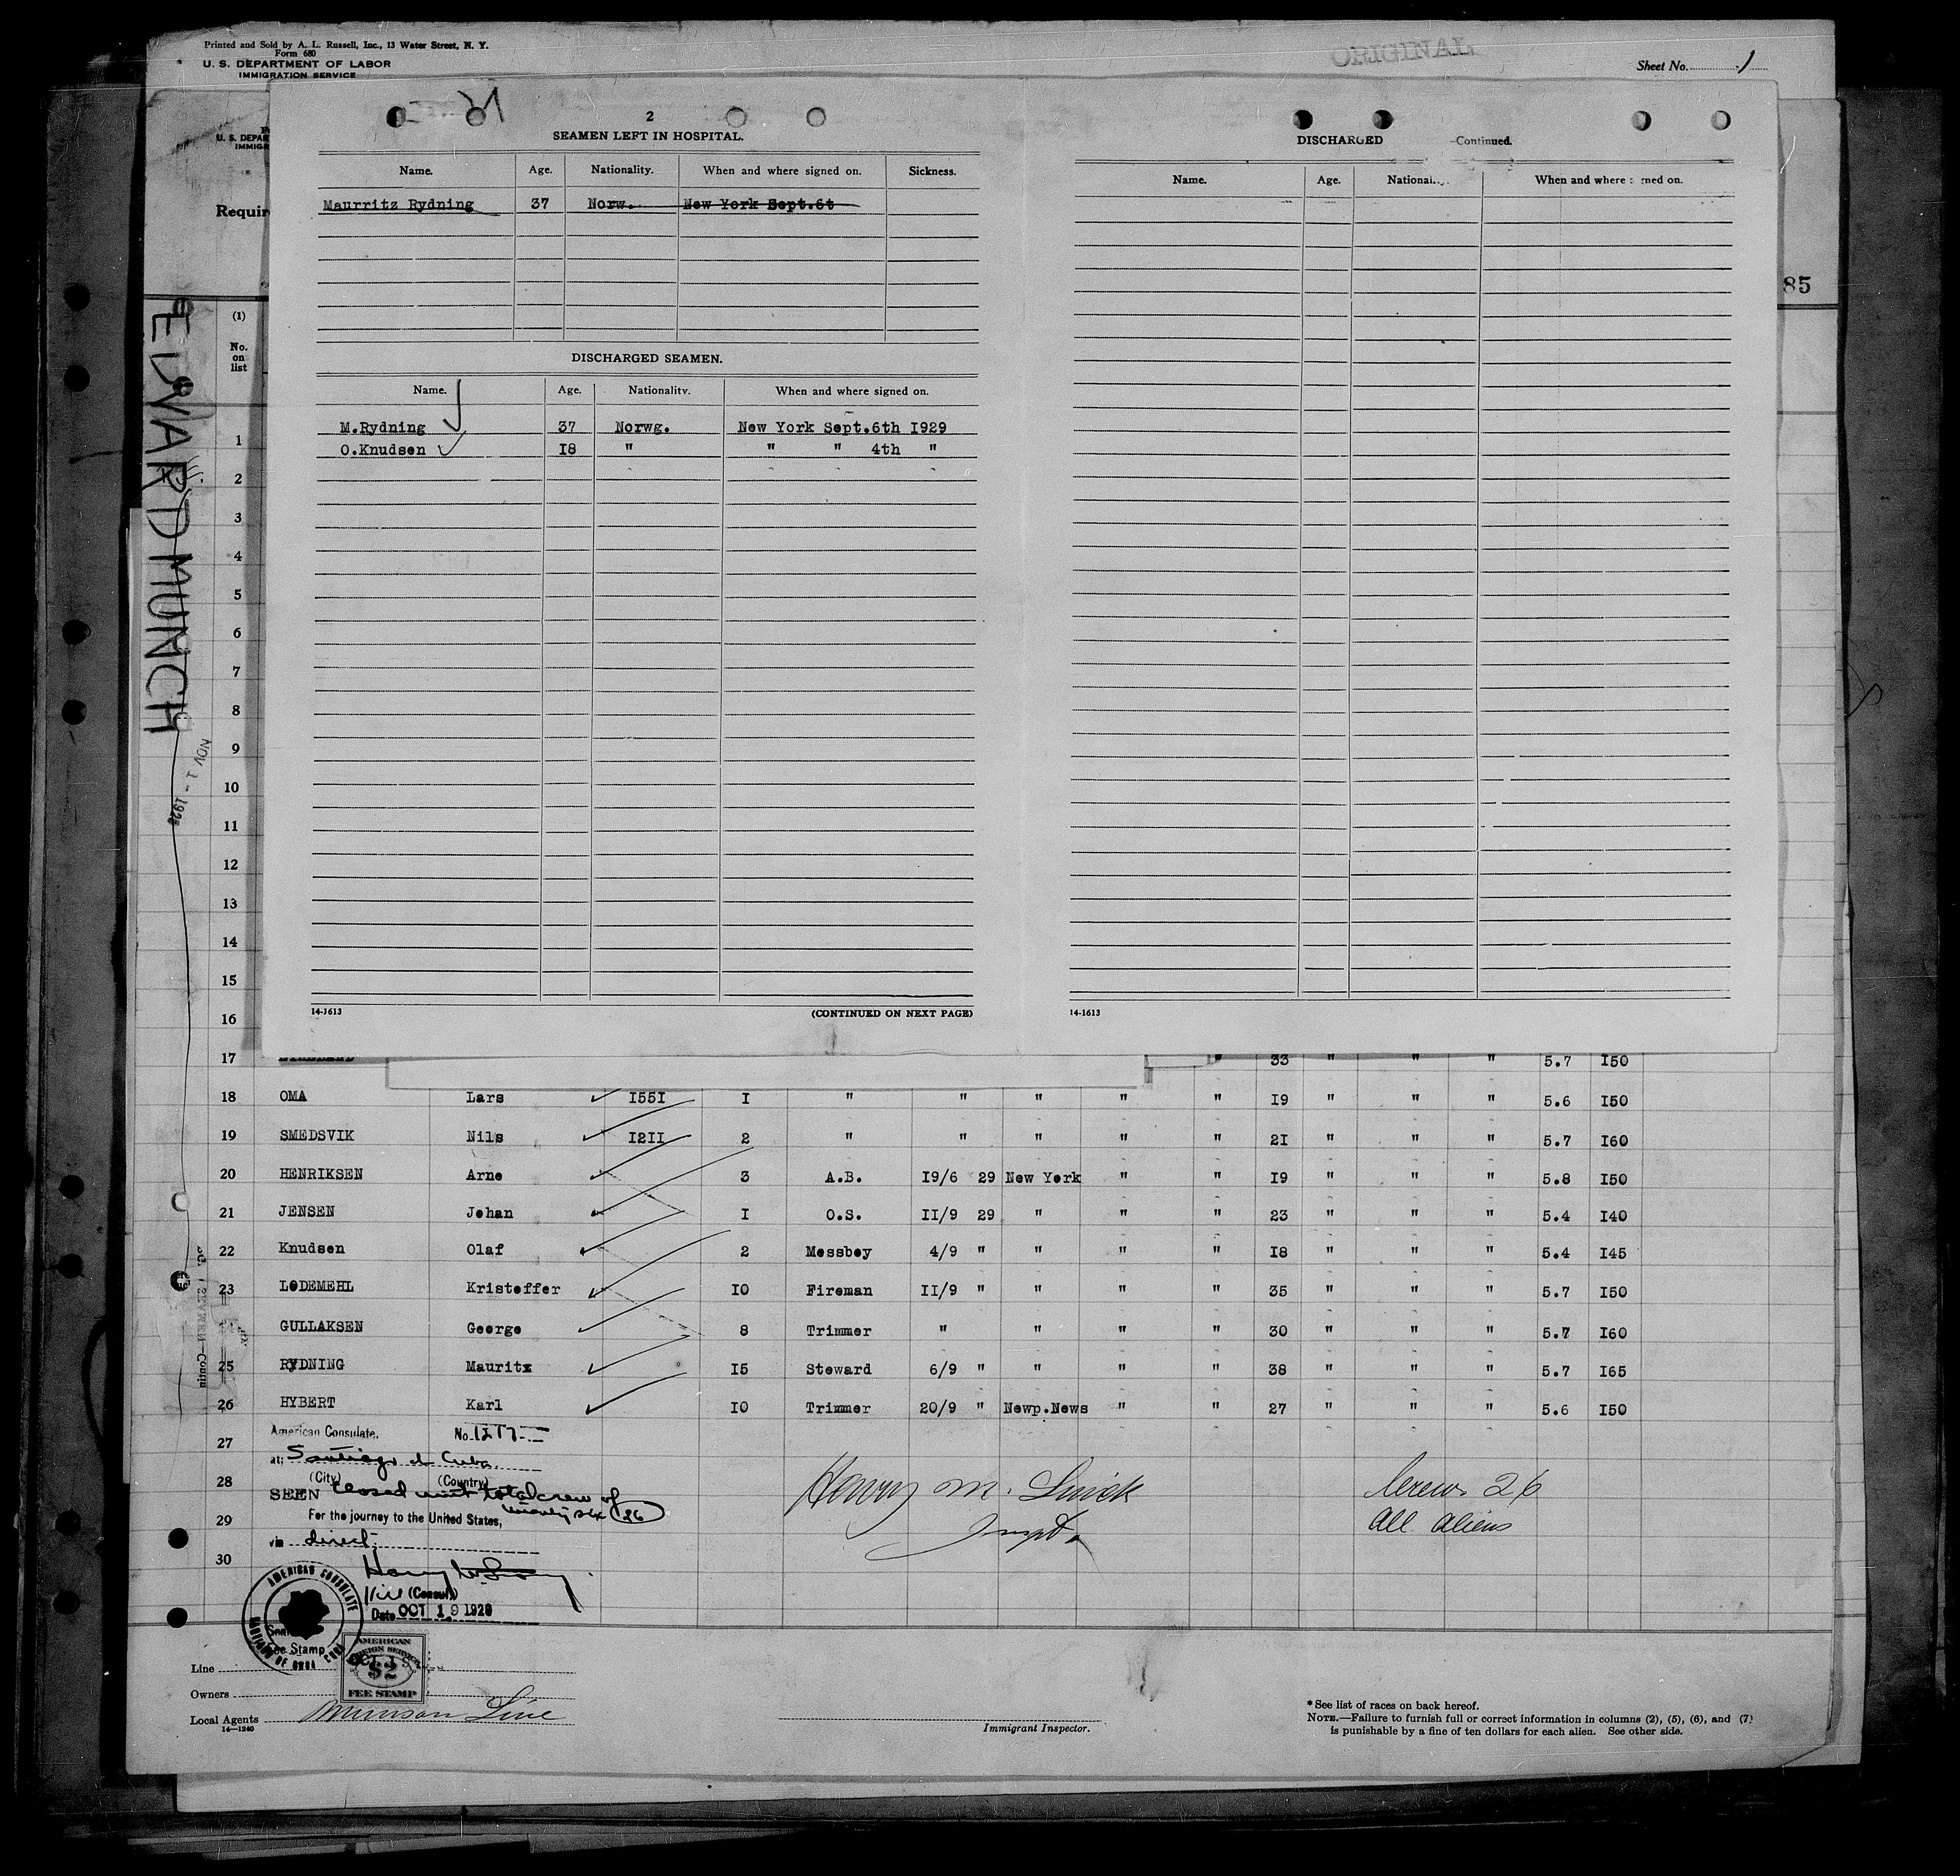 Printed and Sold by A. L. Russell, Inc., 13 Water Street, N. Y.
Form 680
U. S. DEPARTMENT OF LABOR
IMMIGRATION SERVICE
ORIGINAL
Sheet No. 1
U. S. DEPAR
IMMIG
Requir
85
EDVARD MUNCH
NOV 1 - 192
(1)
No.
on
list
2
SEAMEN LEFT IN HOSPITAL.
Name. Age. Nationality. When and where signed on. Sickness.
Maurritz Rydning 37 Norw. New York Sept.6t
DISCHARGED SEAMEN.
Name. Age. Nationality. When and where signed on.
M.Rydning 37 Norwg. New York Sept.6th I929
O.Knudsen I8 " " " 4th "
14-1613
(CONTINUED ON NEXT PAGE)
DISCHARGED -Continued.
Name. Age. National When and where signed on.
14-1613
1
2
3
4
5
6
7
8
9
10
11
12
13
14
15
16
17 33 " " " 5.7 I50
18 OMA Lars I55I I " " " " " I9 " " " 5.6 I50
19 SMEDSVIK Nils I2II 2 " " " " " 2I " " " 5.7 I60
20 HENRIKSEN Arne 3 A.B. I9/6 29 New York " " I9 " " " 5.8 I50
21 JENSEN Johan I O.S. II/9 29 " " " 23 " " " 5.4 I40
22 Knudsen Olaf 2 Messboy 4/9 " " " " I8 " " " 5.4 I45
23 LODEMEHL Kristoffer IO Fireman II/9 " " " " 35 " " " 5.7 I50
GULLAKSEN George 8 Trimmer " " " " 30 " " " 5.7 I60
25 RYDNING Mauritz I5 Steward 6/9 " " " " 38 " " " 5.7 I65
26 HYBERT Karl IO Trimmer 20/9 " Newp.News " " 27 " " " 5.6 I50
27
28
29
30
American Consulate. No.
at: Santiago de Cuba
(City) (Country)
SEEN closed with total crew of
twenty six (26)
For the journey to the United States,
via direct
(Consul)
Date OCT 19 1929
AMERICAN CONSULATE
SANTIAGO DE CUBA
Fee Stamp
AMERICAN
FOREIGN SERVICE
$2
FEE STAMP
Henry M.
Inspt.
Crew 26
All aliens
Line
Owners
Local Agents Munson Line
14-1240
Immigrant Inspector.
* See list of races on back hereof.
NOTE.—Failure to furnish full or correct information in columns (2), (5), (6), and (7)
is punishable by a fine of ten dollars for each alien. See other side.